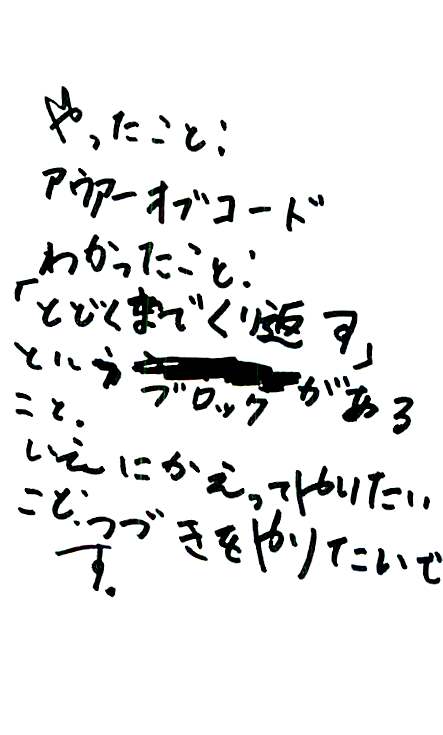 やったこと:
アワアーオブコード
わかったこと:
「とどくまでくり返す」
という
ブロックがある
こと.
いえにかえってやりたい
こと:つづきをやりたいで
す.